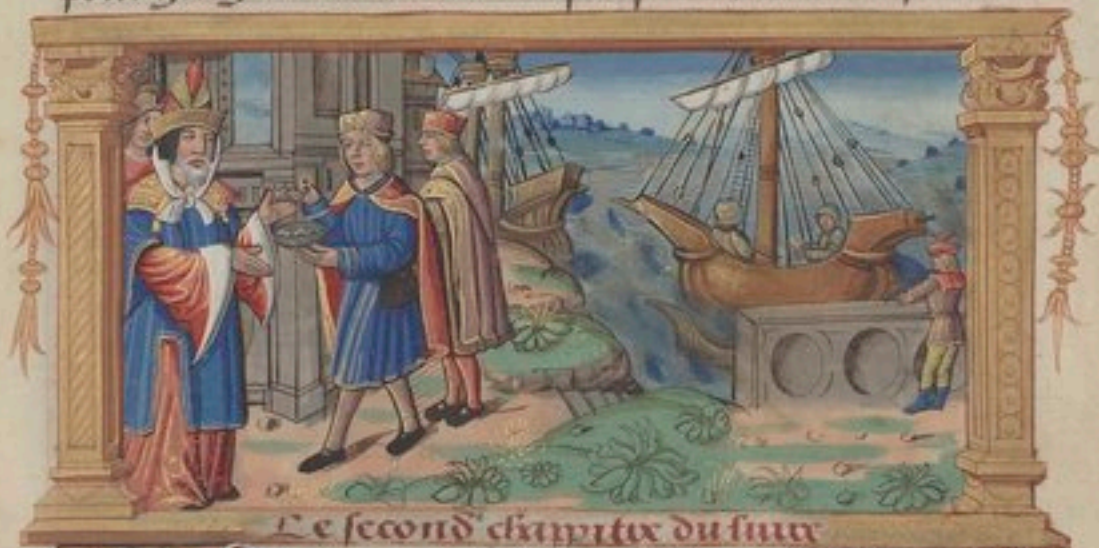 Le second chapitre du liure